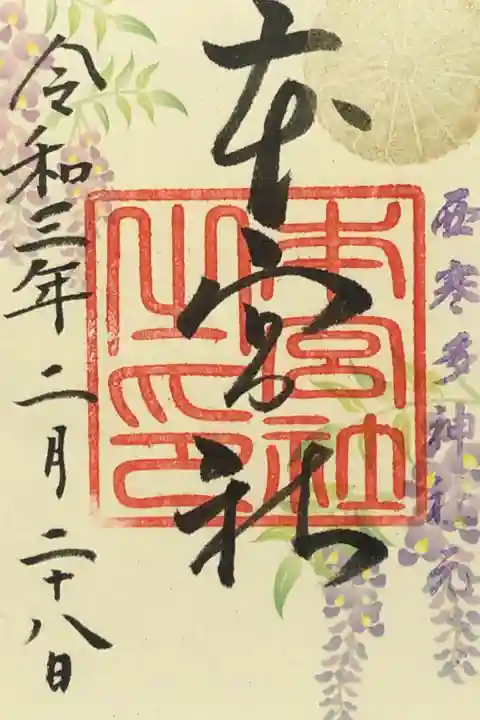 西寒多神社元
本宮社
本宮社之印
令和三年二月二十八日